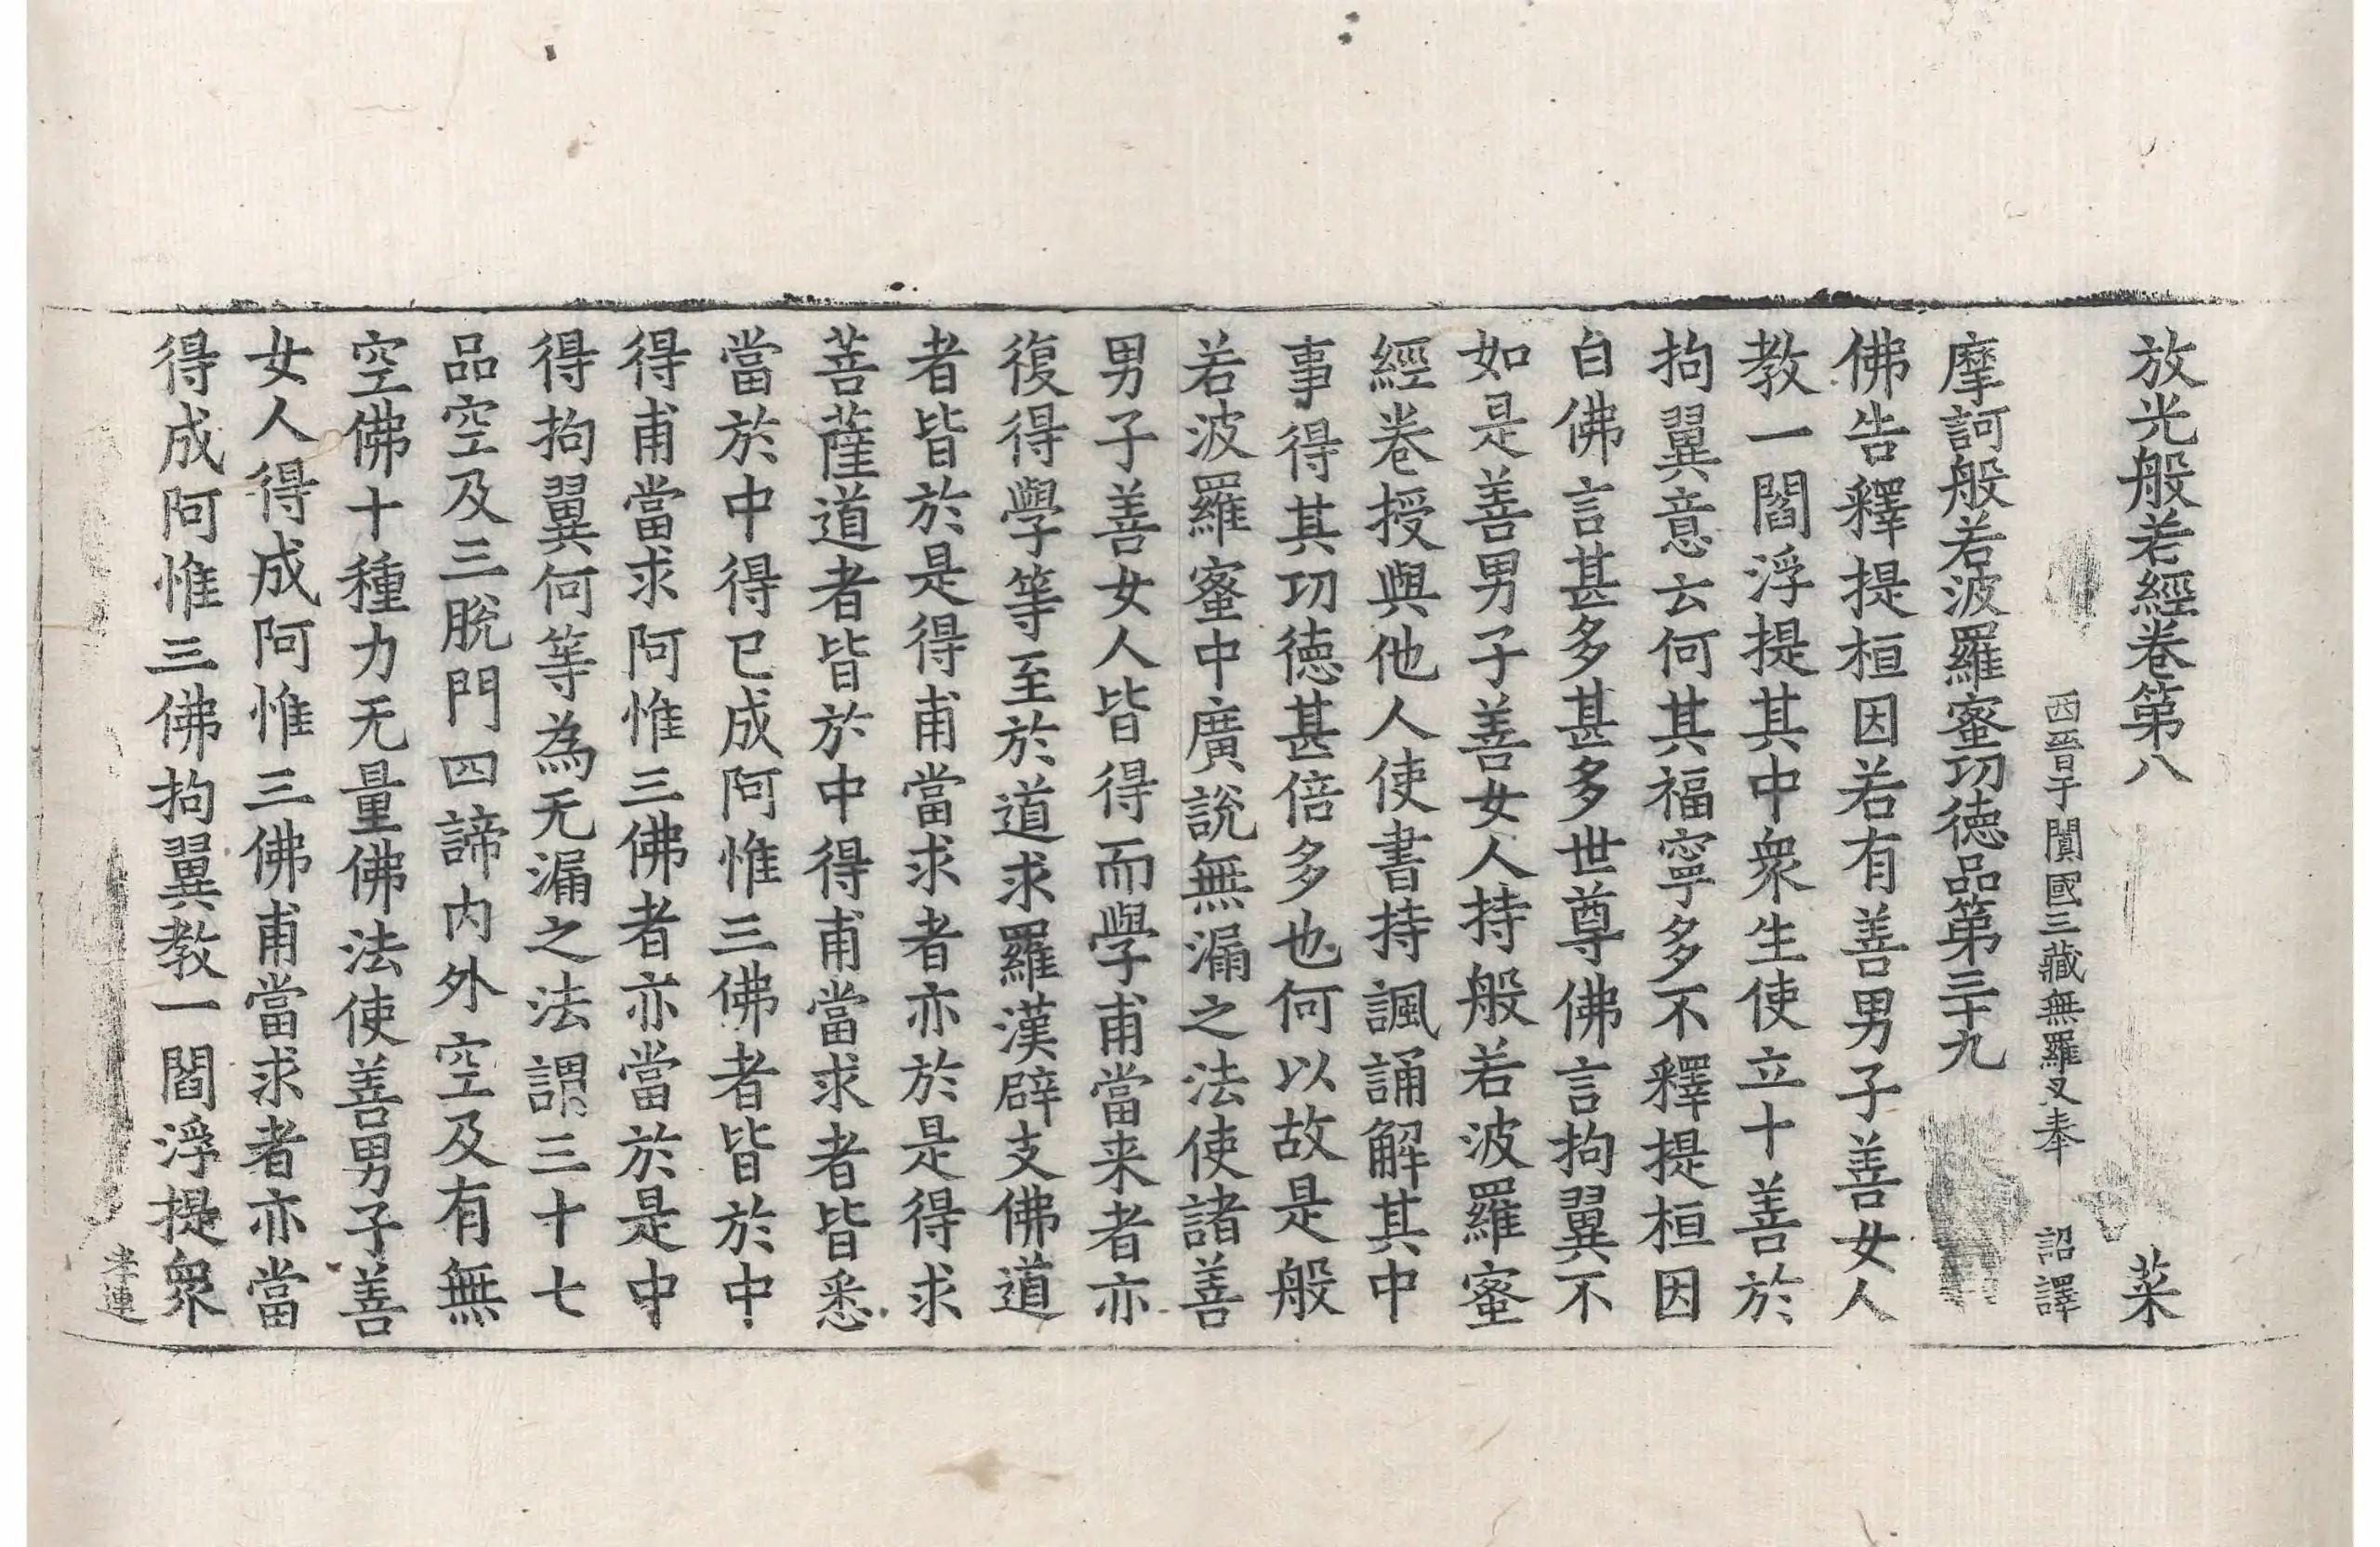 放光般若經卷第八 菜
西晉于闐國三藏無羅叉奉 詔譯
摩訶般若波羅蜜功德品第三十九
佛告釋提桓因若有善男子善女人
教一閻浮提其中衆生使立十善於
拘翼意云何其福寧多不釋提桓因
白佛言甚多甚多世尊佛言拘翼不
如是善男子善女人持般若波羅蜜
經卷授與他人使書持諷誦解其中
事得其功德甚倍多也何以故是般
若波羅蜜中廣說無漏之法使諸善
男子善女人皆得而學甫當来者亦
復得學等至於道求羅漢辟支佛道
者皆於是得甫當求者亦於是得求
菩薩道者皆於中得甫當求者皆悉
當於中得已成阿惟三佛者皆於中
得甫當求阿惟三佛者亦當於是中
得拘翼何等為无漏之法謂三十七
品空及三脫門四諦内外空及有無
空佛十種力无量佛法使善男子善
女人得成阿惟三佛甫當求者亦當
得成阿惟三佛拘翼教一閻浮提衆